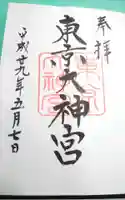 奉拝
東京大神宮
平成廿九年五月七日